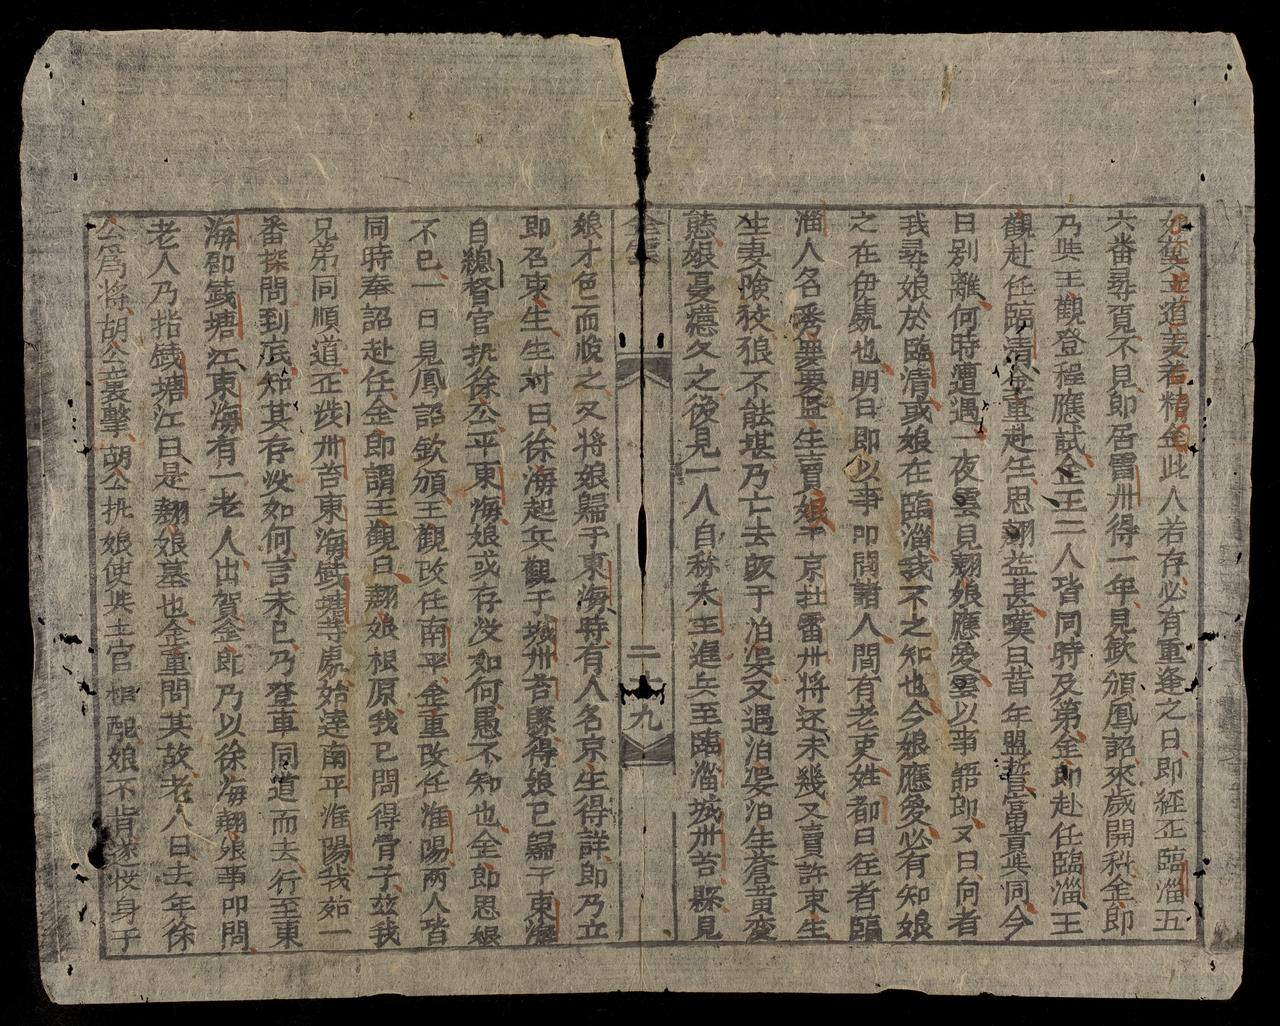 道姜若精金此人若存必有重逢之日即經正臨淄五
六番尋覔不見即居雷州得一年見欽頒鳳詔來歲開科金即
乃與王觀登程應試金王二人皆同時及第金即赴任臨淄王
觀赴任臨清金重赴任思翹益甚嘆曰昔年盟誓富貴與同今
日別離何時遭遇一夜雲見翹娘應愛雲以事語即又曰向者
我尋娘於臨清或娘在臨淄我不之知也今娘應愛必有知娘
之在伊處也明日即以事叩問諸人間有老吏姓都曰往者臨
淄人名秀要要監生賣娘于京社雷州將还未幾又賣許束生
生妻險狡狼不能堪乃亡去敀于泊娑又遇泊娑泊生蒼黃变
態娘憂懣久之後見一人自称大王進兵至臨淄城州苔縣見
二十九
娘才色而悅之又将娘歸于東海時有人名京生得詳即乃立
即召束生生対曰徐海起兵觀于城州苔縣得娘已歸于東海
自總督官执徐公平東海娘或存没如何愚不知也金即思娘
不已一日見鳳詔欽頒王觀改任南平金重改任淮陽兩人皆
同時奉詔赴任金即謂王觀曰翹娘根原我已問得骨子茲我
兄弟同順道正涉州苔東海錢塘等處始達南平淮陽我茹一
番探問到底知其存没如何言未已乃登車同道而去行至東
海即錢塘江東海有一老人出賀金即乃以徐海翹娘事叩問
老人乃指錢塘江曰是翹娘墓也金重問其故老人曰去年徐
公為将胡公裏擊胡公执娘使與土官相配娘不肯遂投身于